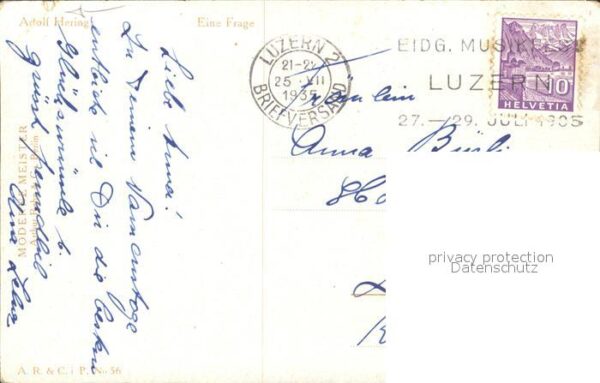 Adolf Hering
Eine Frage
Liebe Anna!
Zu Deinem Namenstage
entbiete ich Dir die besten
Glückwünsche &
grüsst freundlich
MODERNE MEISTER
A. R. & C. i. P. No 56
LUZERN 2
21-2
25. VII
1935
BRIEFVERSAND
EIDG. MUSIKFEST
LUZERN
27.—29. JULI 1935
10
HELVETIA
Fräulein
Anna
privacy protection
Datenschutz